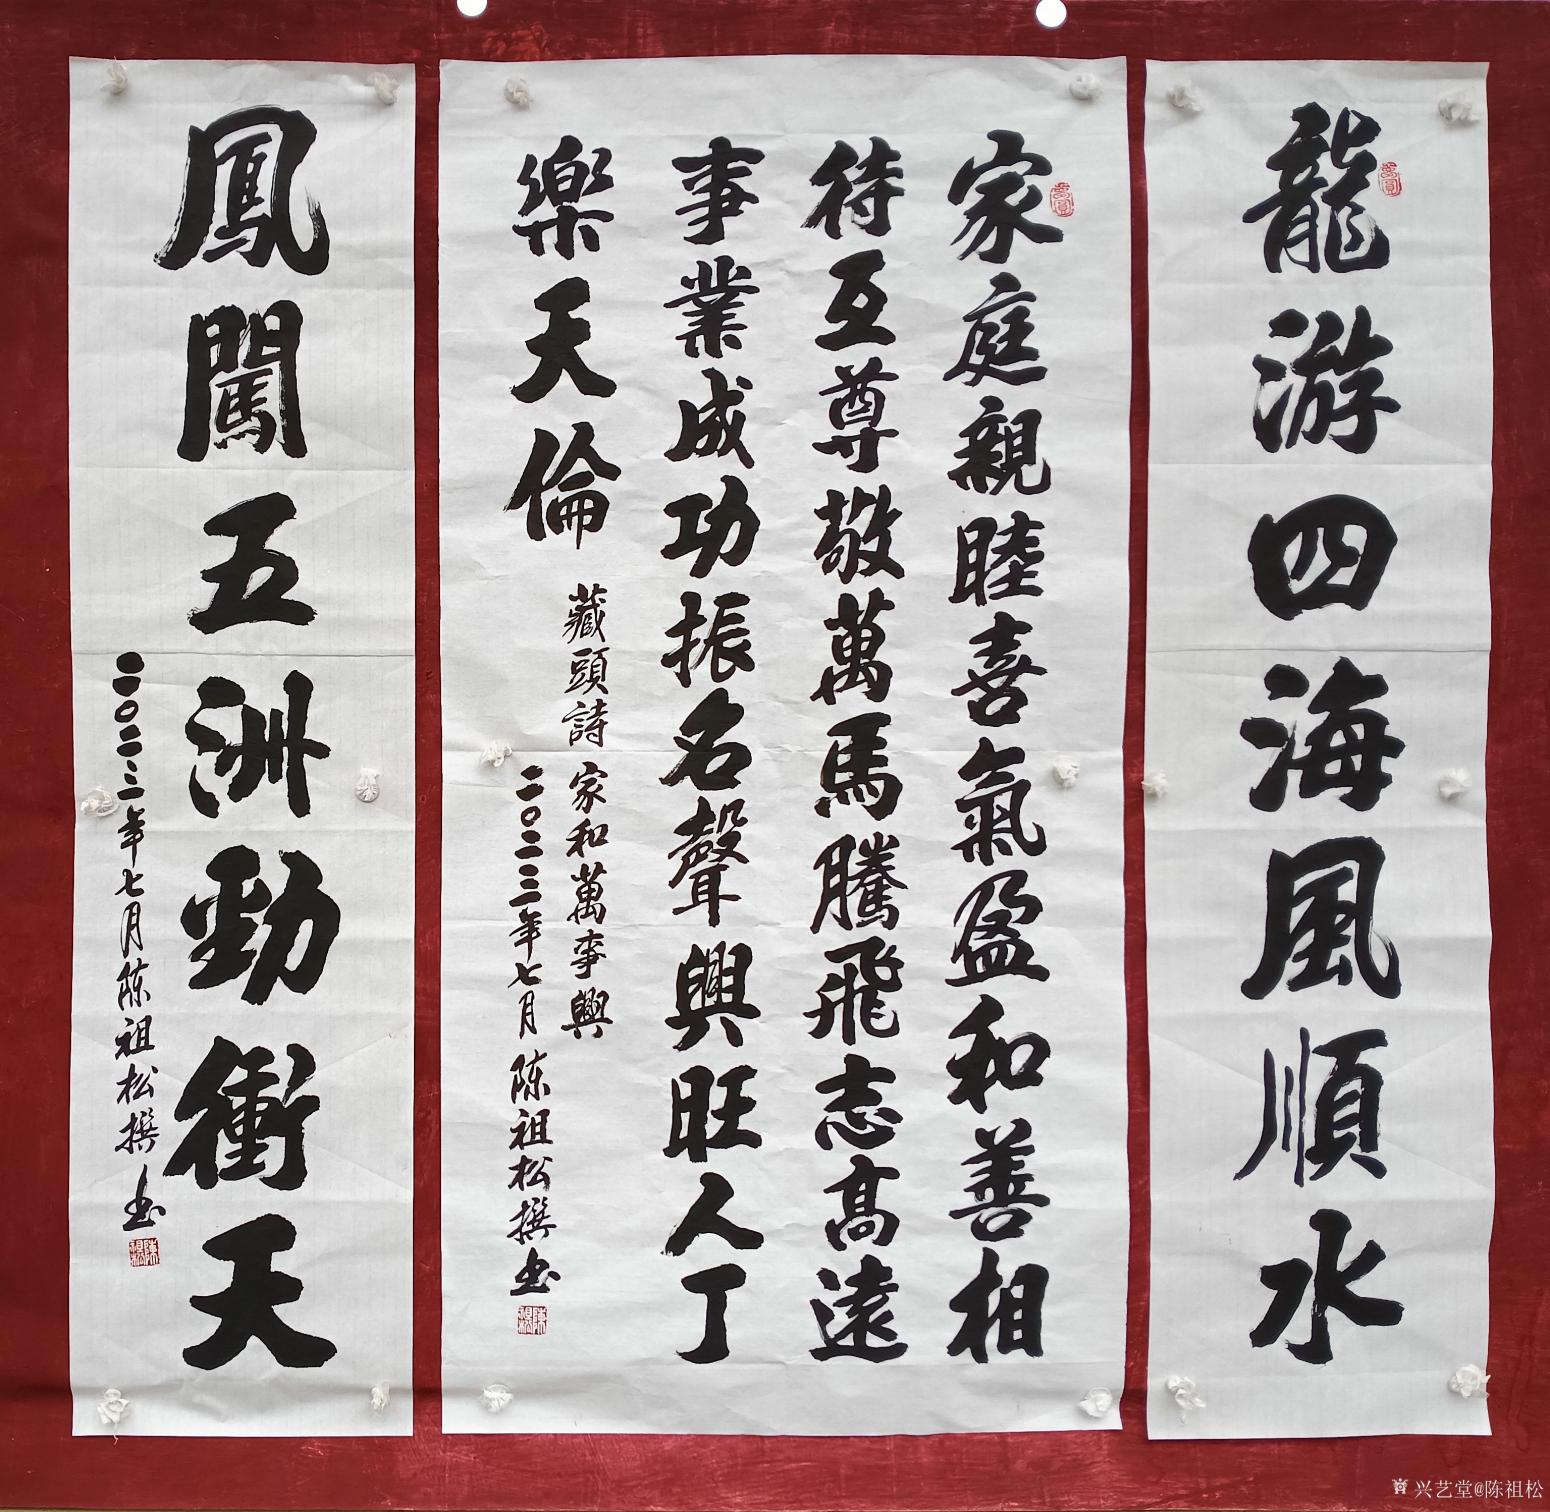 龍游四海風順水
家庭親睦喜氣盈和善相
待互尊敬萬馬騰飛志高遠
事業成功振名聲興旺人丁
樂天倫
藏頭詩 家和萬事興
二〇二三年七月 陈祖松撰书
鳳闖五洲勁衝天
二〇二三年七月陈祖松撰书
兴艺堂@陈祖松